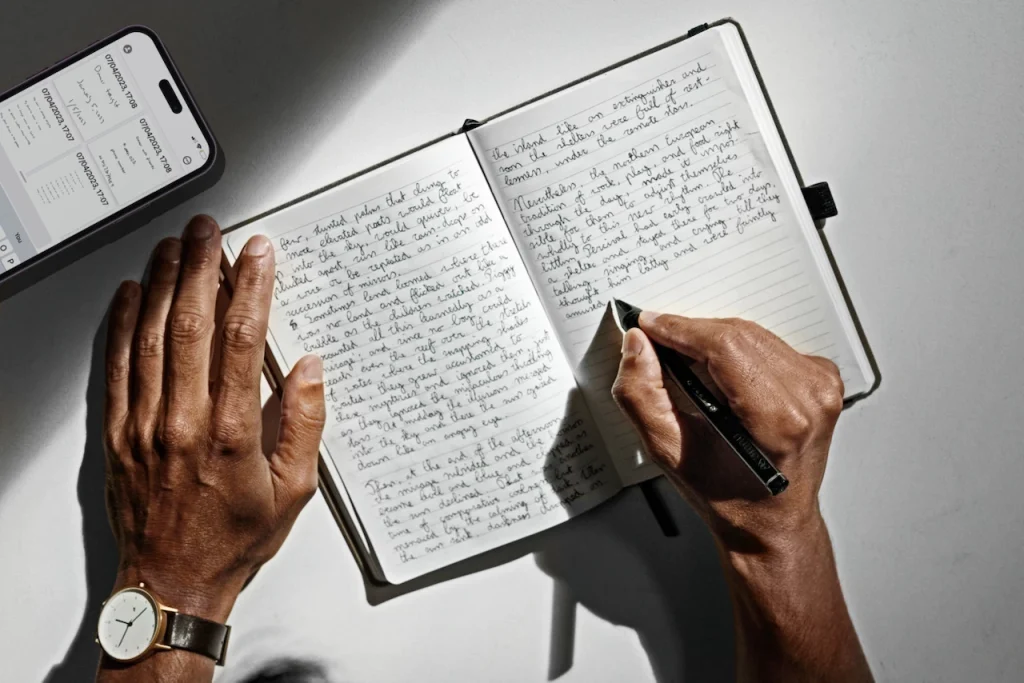 07/04/2023, 17:08
07/04/2023, 17:08
07/04/2023, 17:07
07/04/2023, 17:07
few, stunted palms that clung to
more elevated parts would float
into the sky, would quiver, be
plucked apart, run like rain-drops on
a wire or be repeated as in an odd
succession of mirrors.
Sometimes land loomed where there
was no land and flicked out like a
bubble as the children watched. Piggy
discounted all this learnedly as a
"mirage"; and since no boy could
reach even the reef over the stretch
of water where the snapping sharks
waited, they grew accustomed to
these mysteries and ignored them, just
as they ignored the miraculous, throbbing
stars. At midday the illusions merged
into the sky and there the sun gazed
down like an angry eye.
Then, at the end of the afternoon
the mirage subsided and the horizon
became level and blue and clipped as
the sun declined. That was another
time of comparative coolness but
menaced by the coming of the dark. When
the sun sank, darkness dropped on
the island like an extinguisher and
soon the shelters were full of rest-
lessness, under the remote stars.
Nevertheless, the northern European
tradition of work, play, and food right
through the day, made it impos-
sible for them to adjust themselves
wholly to this new rhythm. The
littlun Percival had early crawled into
a shelter and stayed there for two days,
talking, singing, and crying, till they
thought him batty and were faintly
amused